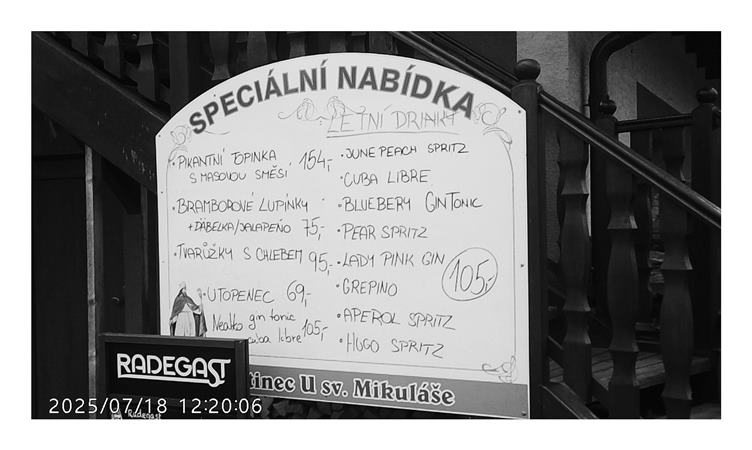 SPECIÁLNÍ NABÍDKA
LETNÍ DRINKY
• PIKANTNÍ TOPINKA 154,-
S MASOVOU SMĚSÍ
• BRAMBOROVÉ LUPÍNKY
+ DÁBELKA/JALAPEÑO 75,-
• TVARŮŽKY S CHLEBEM 95,-
• UTOPENEC 69,-
Nealko gin tonic
cuba libre 105,-
• JUNE PEACH SPRITZ
• CUBA LIBRE
• BLUEBERY GIN TONIC
• PEAR SPRITZ
• LADY PINK GIN
105,-
• GREPINO
• APEROL SPRITZ
• HUGO SPRITZ
RADEGAST
tinec U sv. Mikuláše
2025/07/18 12:20:06
Radegast